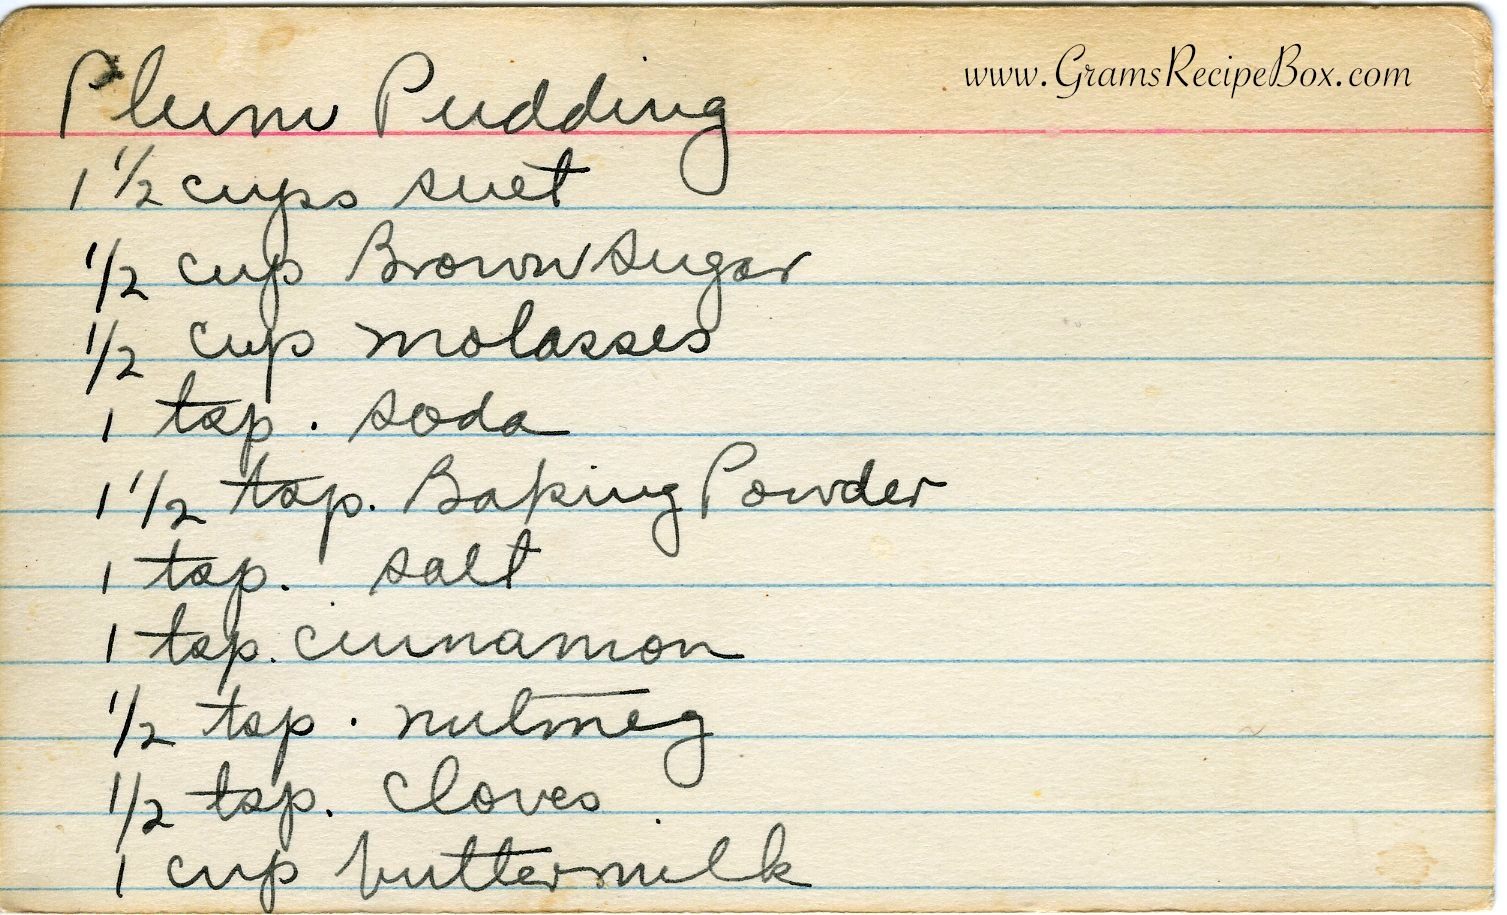 Plum Pudding
www.GramsRecipeBox.com
1 1/2 cups suet
1/2 cup Brown Sugar
1/2 cup molasses
1 tsp. soda
1 1/2 tsp. Baking Powder
1 tsp. salt
1 tsp. cinnamon
1/2 tsp. nutmeg
1/2 tsp. cloves
1 cup buttermilk